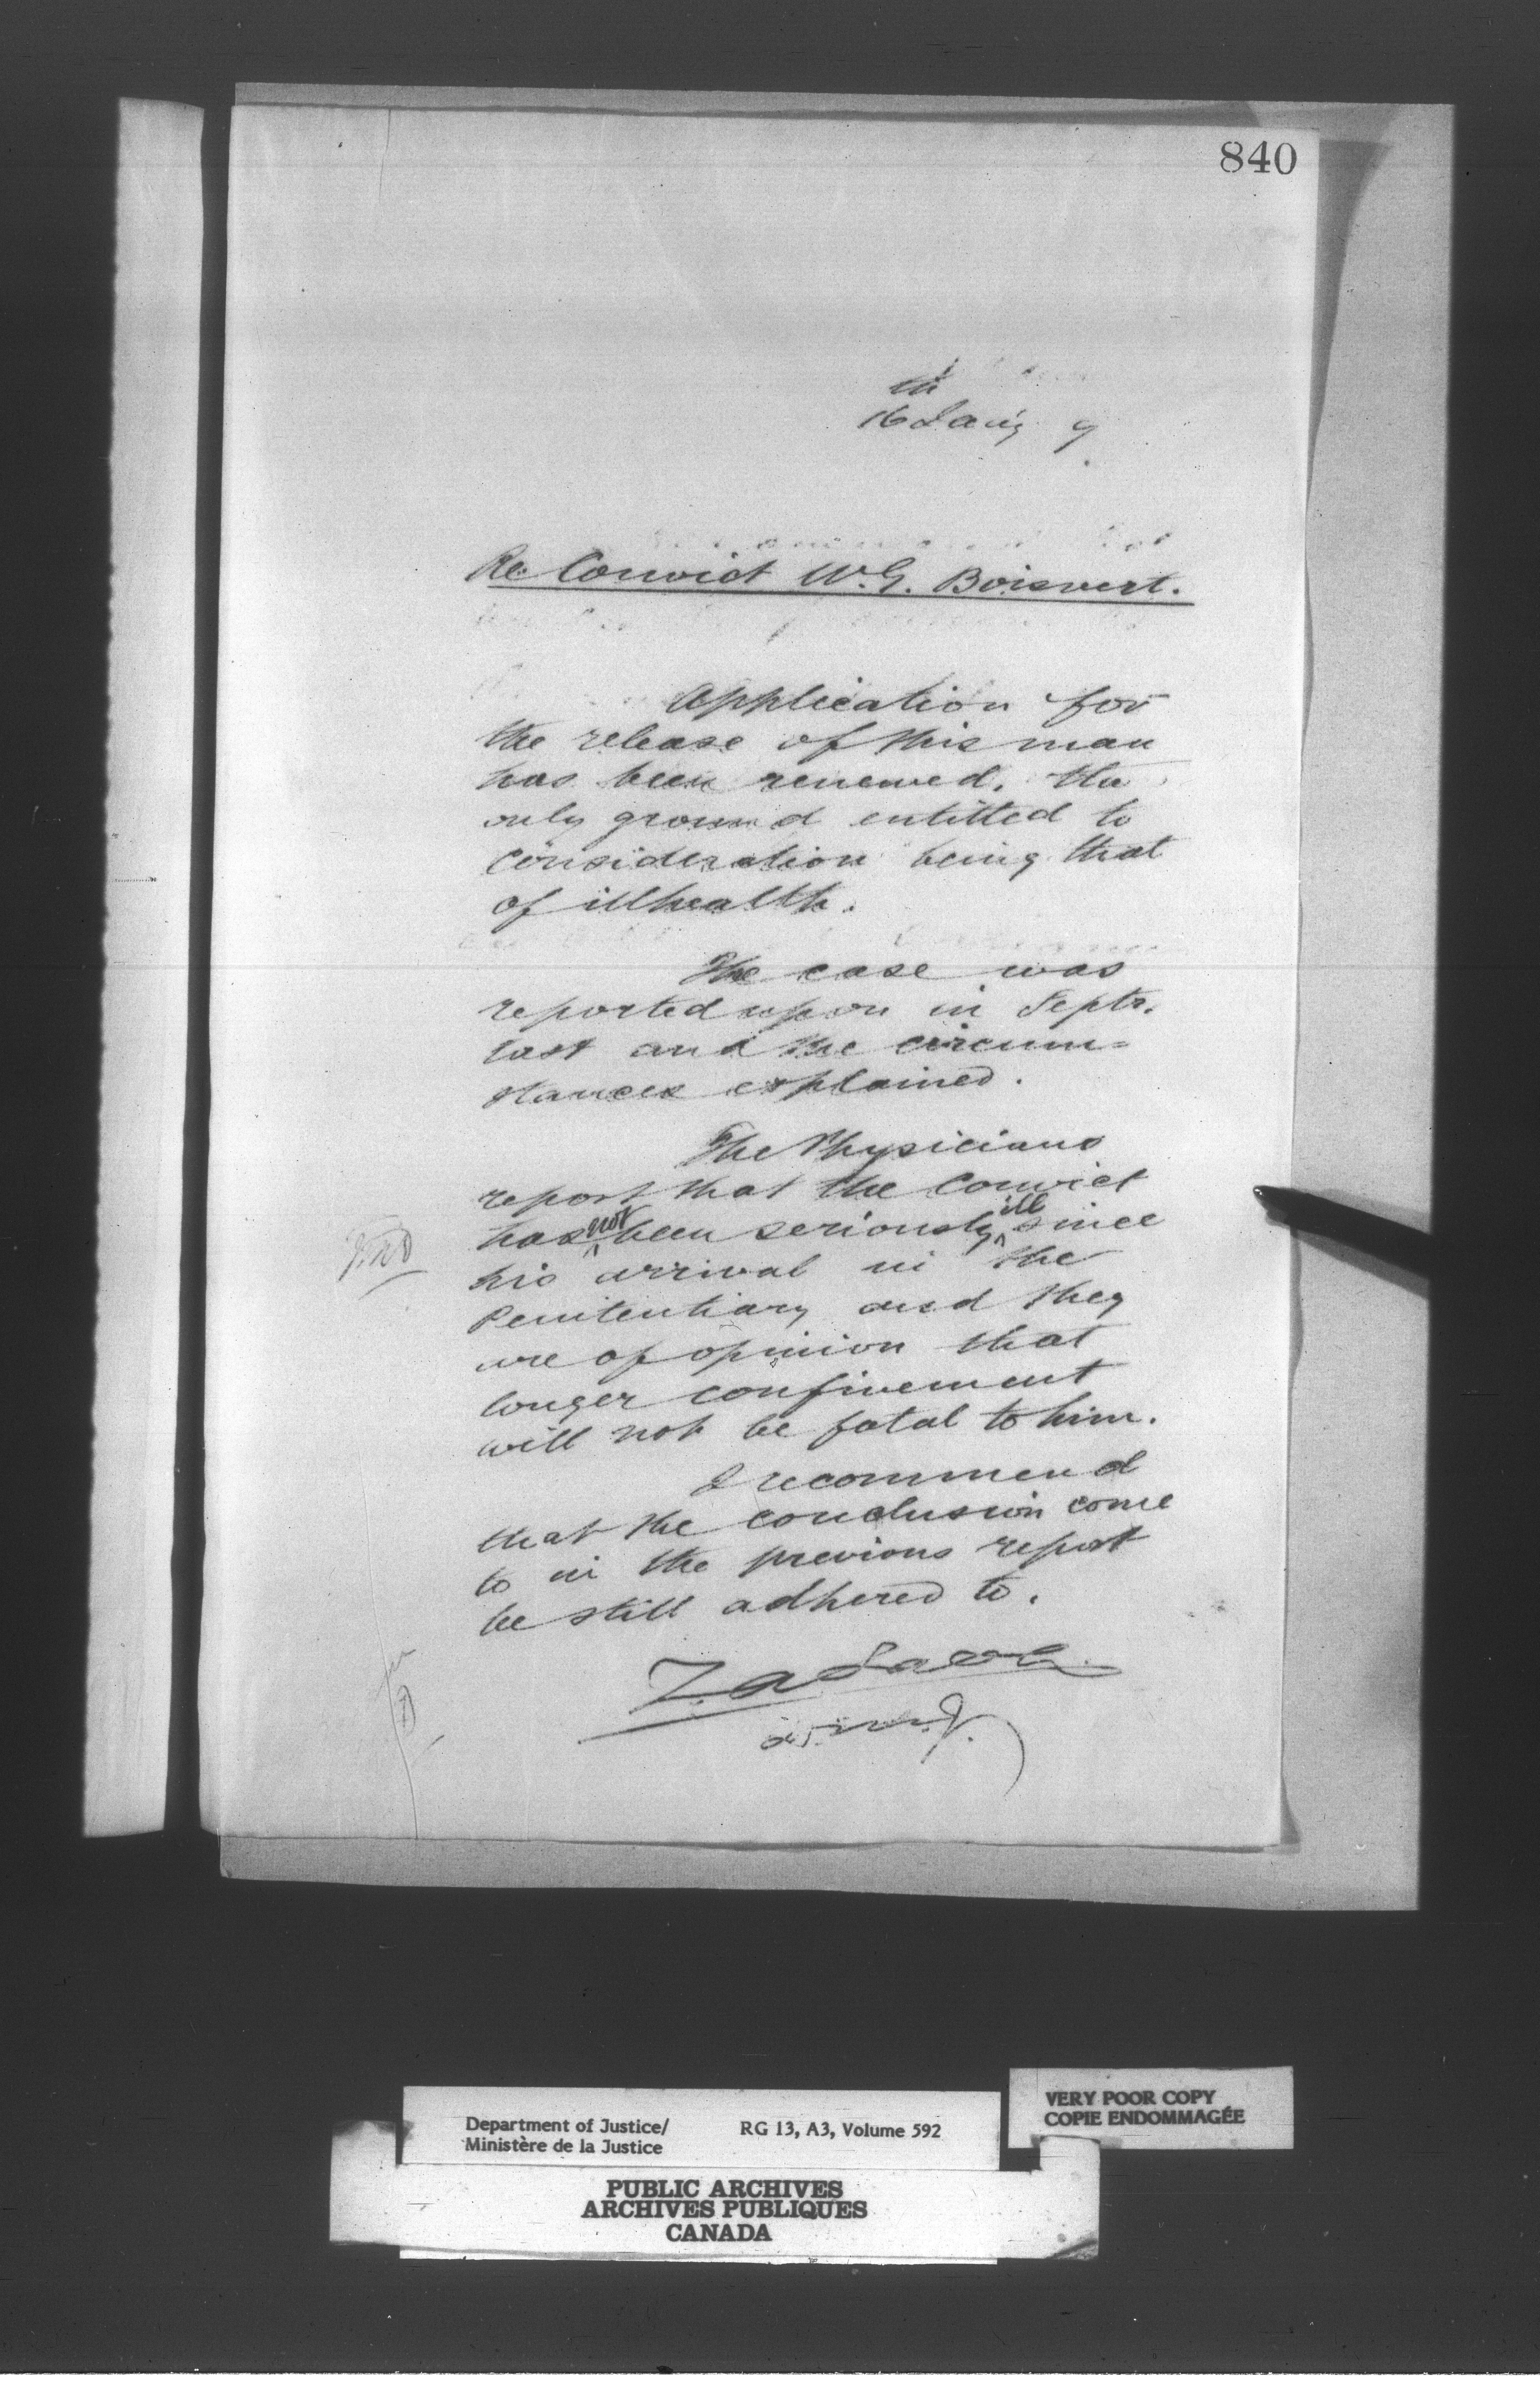 840
th
16 Jan'y 9
Re Convict W.G. Boisvert.
Application for
the release of this man
has been renewed, the
only ground entitled to
consideration being that
of illhealth.
The case was
reported upon in Septr.
last and the circum=
stances explained.
The Physicians
report that the Convict
has not been seriously ill since
his arrival in the
Penitentiary and they
are of opinion that
longer confinement
will not be fatal to him.
I recommend
that the conclusion come
to in the previous report
be still adhered to.
Department of Justice/
Ministère de la Justice
RG 13, A3, Volume 592
VERY POOR COPY
COPIE ENDOMMAGÉE
PUBLIC ARCHIVES
ARCHIVES PUBLIQUES
CANADA